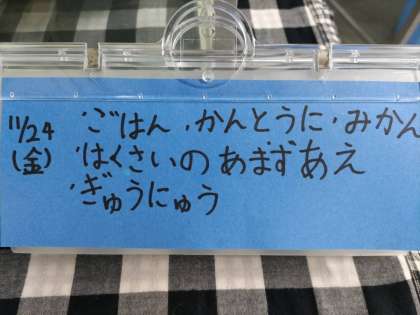 11/24 ・ごはん ・かんとうに ・みかん
(金) ・はくさいのあまずあえ
・ぎゅうにゅう